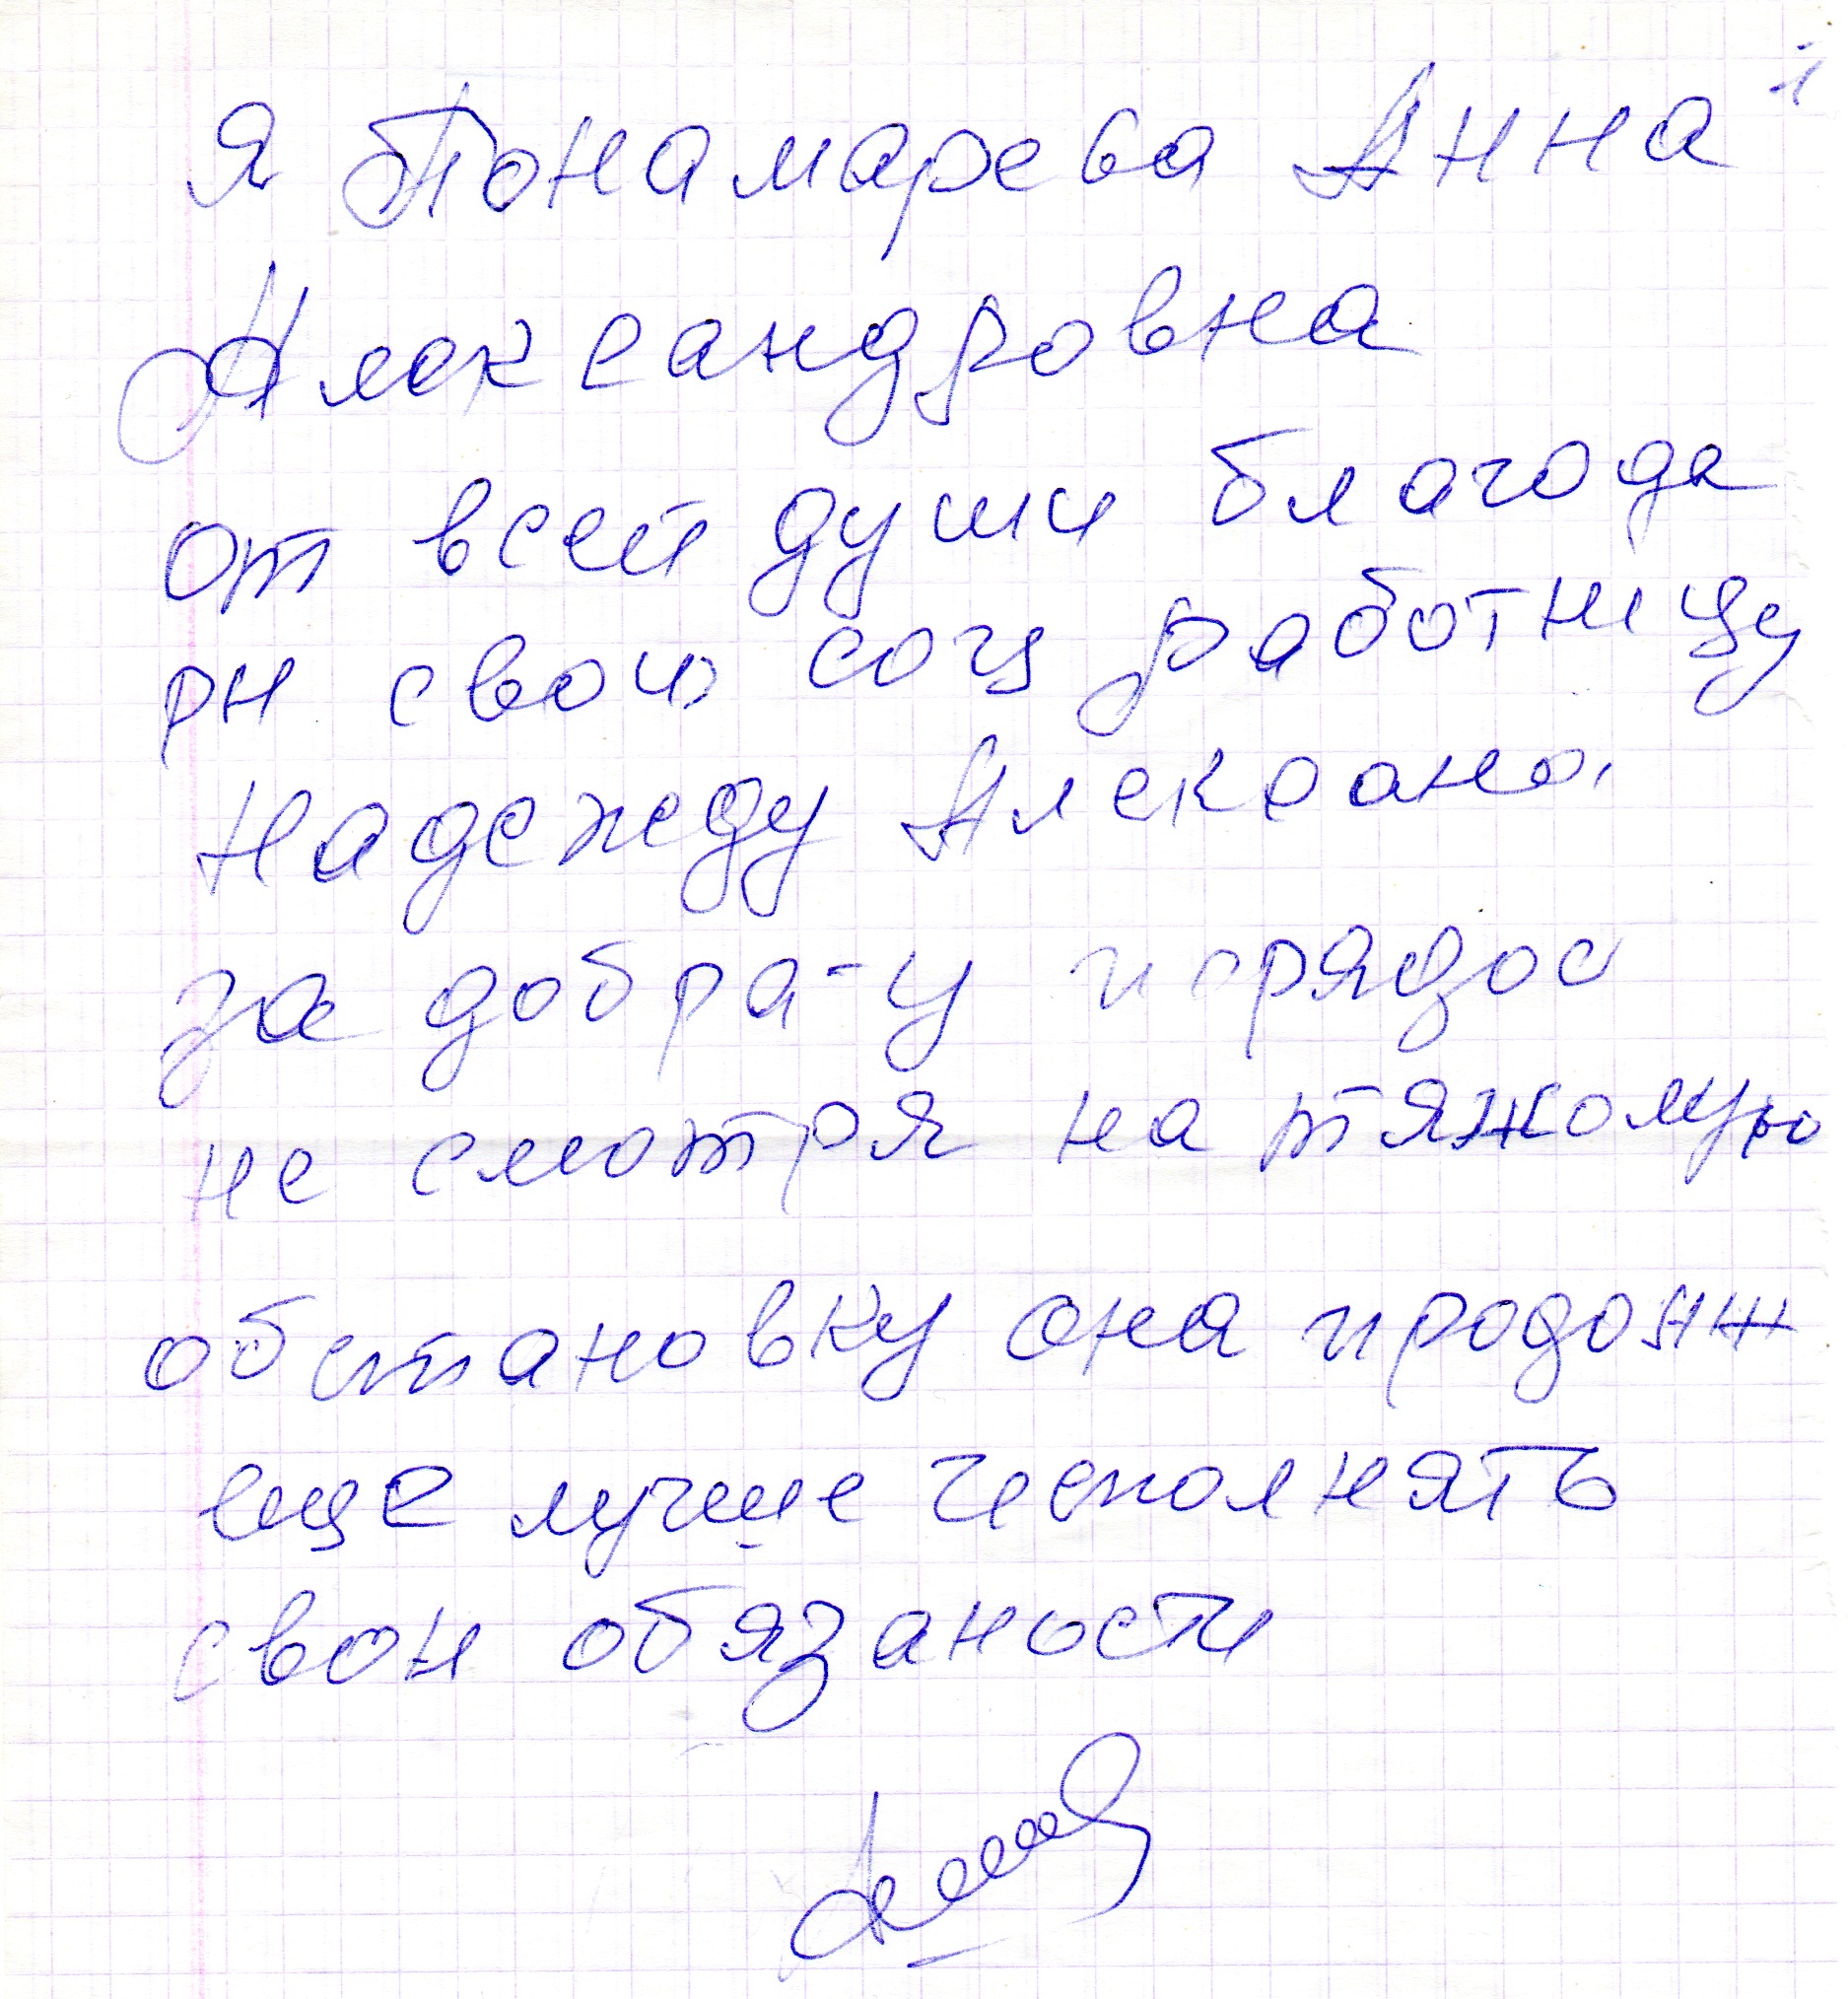 Я Понамарева Анна
Александровна
от всей души благода
рн свою соц работницу
Надежду Александ.
за добра-у порядос
не смотря на тяжолую
обстановку она продолж
еще лучше исполнять
свои обязаности